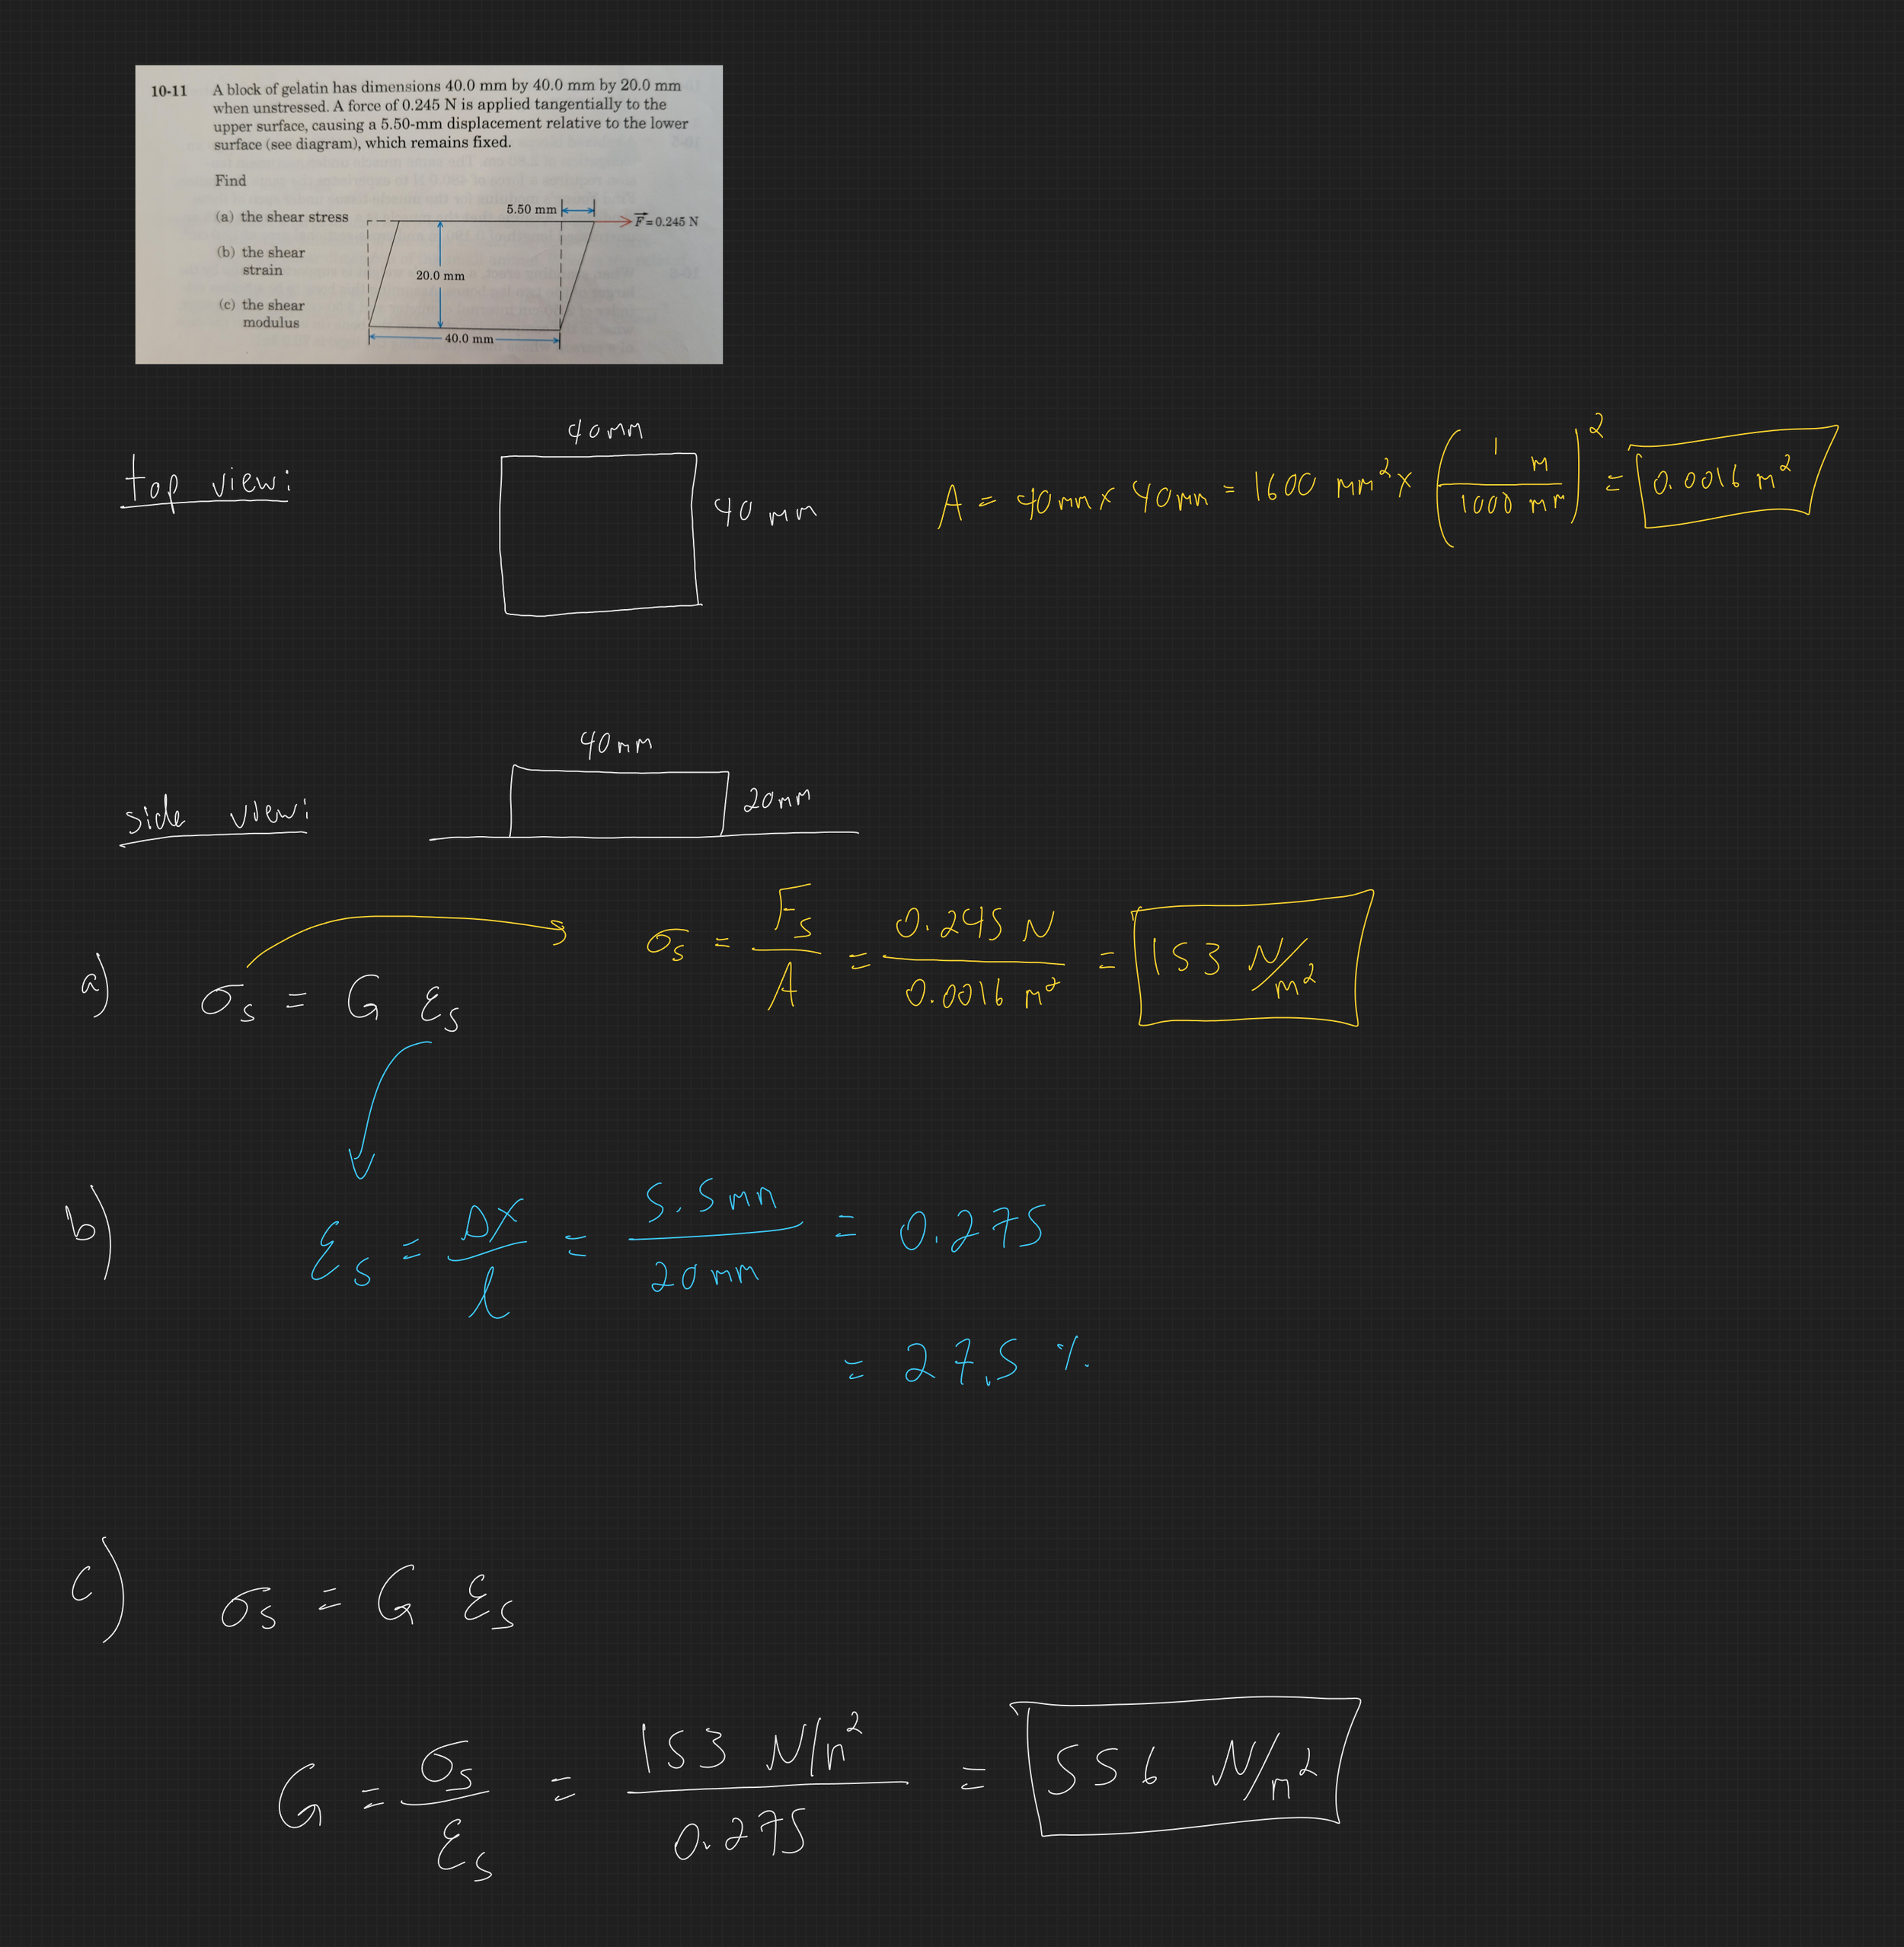 10-11 A block of gelatin has dimensions 40.0 mm by 40.0 mm by 20.0 mm
when unstressed. A force of 0.245 N is applied tangentially to the
upper surface, causing a 5.50-mm displacement relative to the lower
surface (see diagram), which remains fixed.
Find
(a) the shear stress
(b) the shear
strain
(c) the shear
modulus
5.50 mm
F⃗ = 0.245 N
20.0 mm
40.0 mm
top view:
40 mm
40 mm
A = 40 mm x 40 mm = 1600 mm² x (1 m / 1000 mm)² = 0.0016 m²
side view:
40 mm
20 mm
a) σs = G εs
σs = Fs / A = 0.245 N / 0.0016 m² = 153 N/m²
b) εs = Δx / l = 5.5 mm / 20 mm = 0.275
= 27.5 %
c) σs = G εs
G = σs / εs = 153 N/m² / 0.275 = 556 N/m²